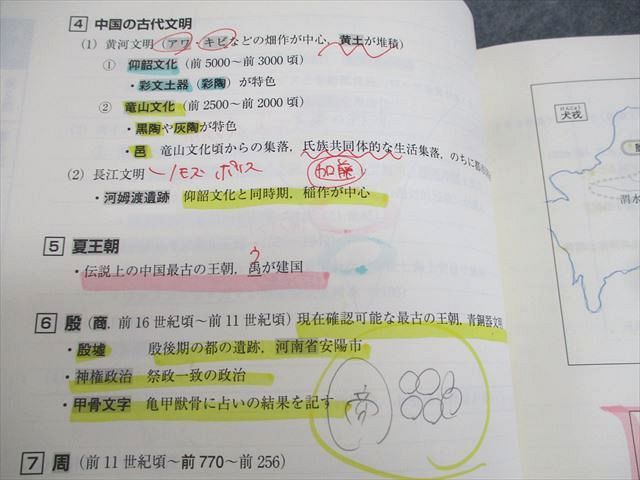 4 中国の古代文明
(1) 黄河文明（アワ・キビなどの畑作が中心，黄土が堆積）
① 仰韶文化（前5000～前3000頃）
・彩文土器（彩陶）が特色
② 竜山文化（前2500～前2000頃）
・黒陶や灰陶が特色
・邑 竜山文化頃からの集落，氏族共同体的な生活集落，のちに都
(2) 長江文明
・河姆渡遺跡 仰韶文化と同時期，稲作が中心
5 夏王朝
う
・伝説上の中国最古の王朝，禹が建国
6 殷（商，前16世紀頃～前11世紀頃）現在確認可能な最古の王朝，青銅器文明
・殷墟 殷後期の都の遺跡，河南省安陽市
・神権政治 祭政一致の政治
・甲骨文字 亀甲獣骨に占いの結果を記す
帝
7 周（前11世紀頃～前770～前256）
けんじゅう
犬戎
渭水